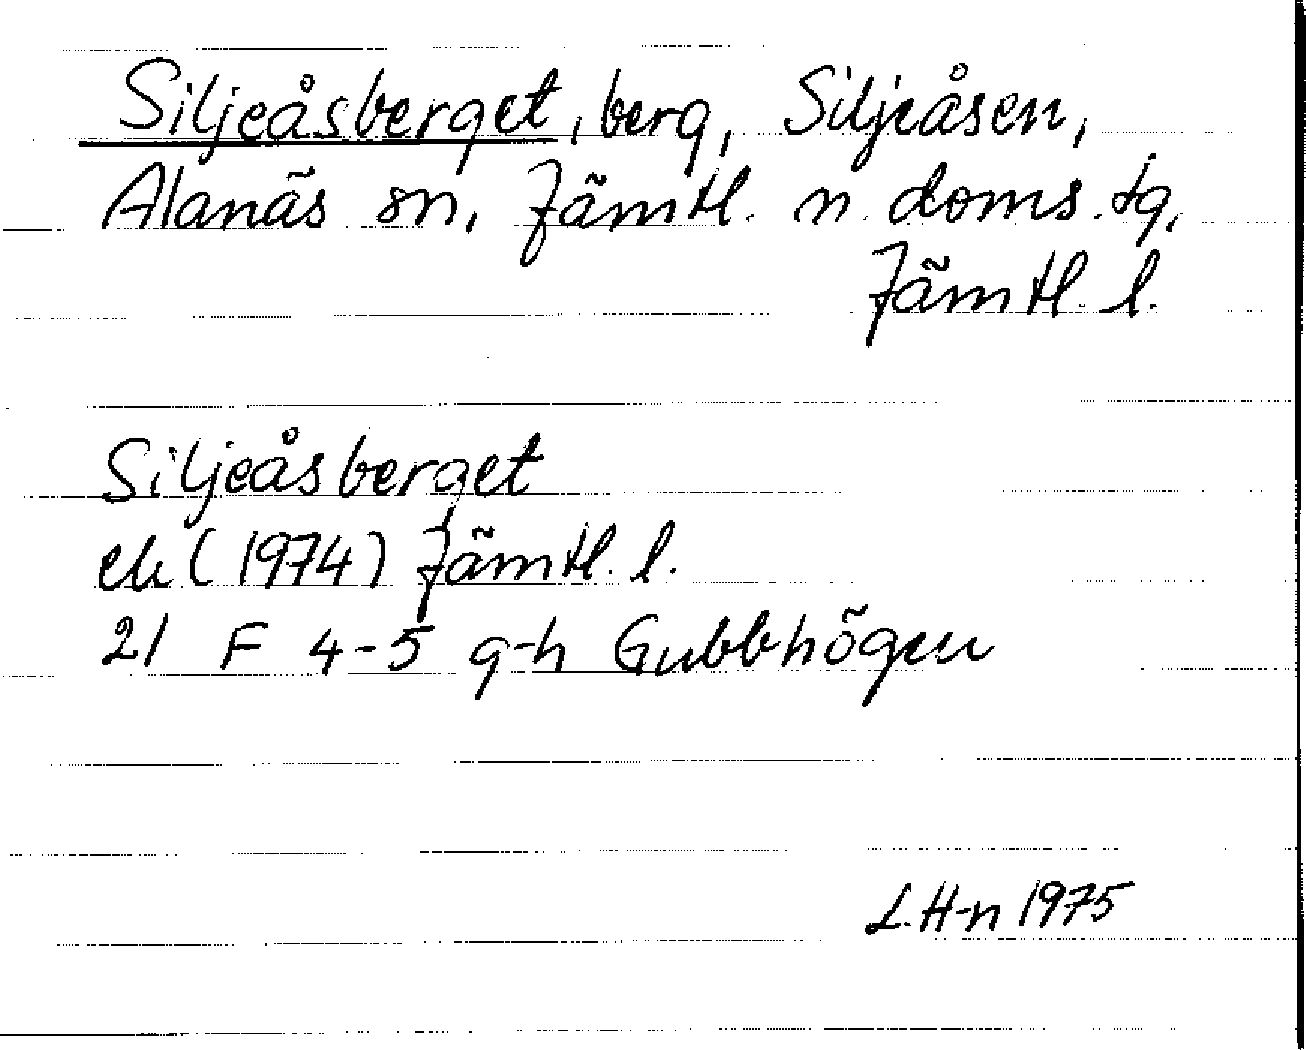 Siljeåsberget, berg, Siljeåsen,
Alanäs sn, Jämtl. n. doms. tg,
Jämtl. l.
Siljeåsberget
ek (1974) Jämtl. l.
21 F 4-5 g-h Gubbhögen
L. H-n 1975